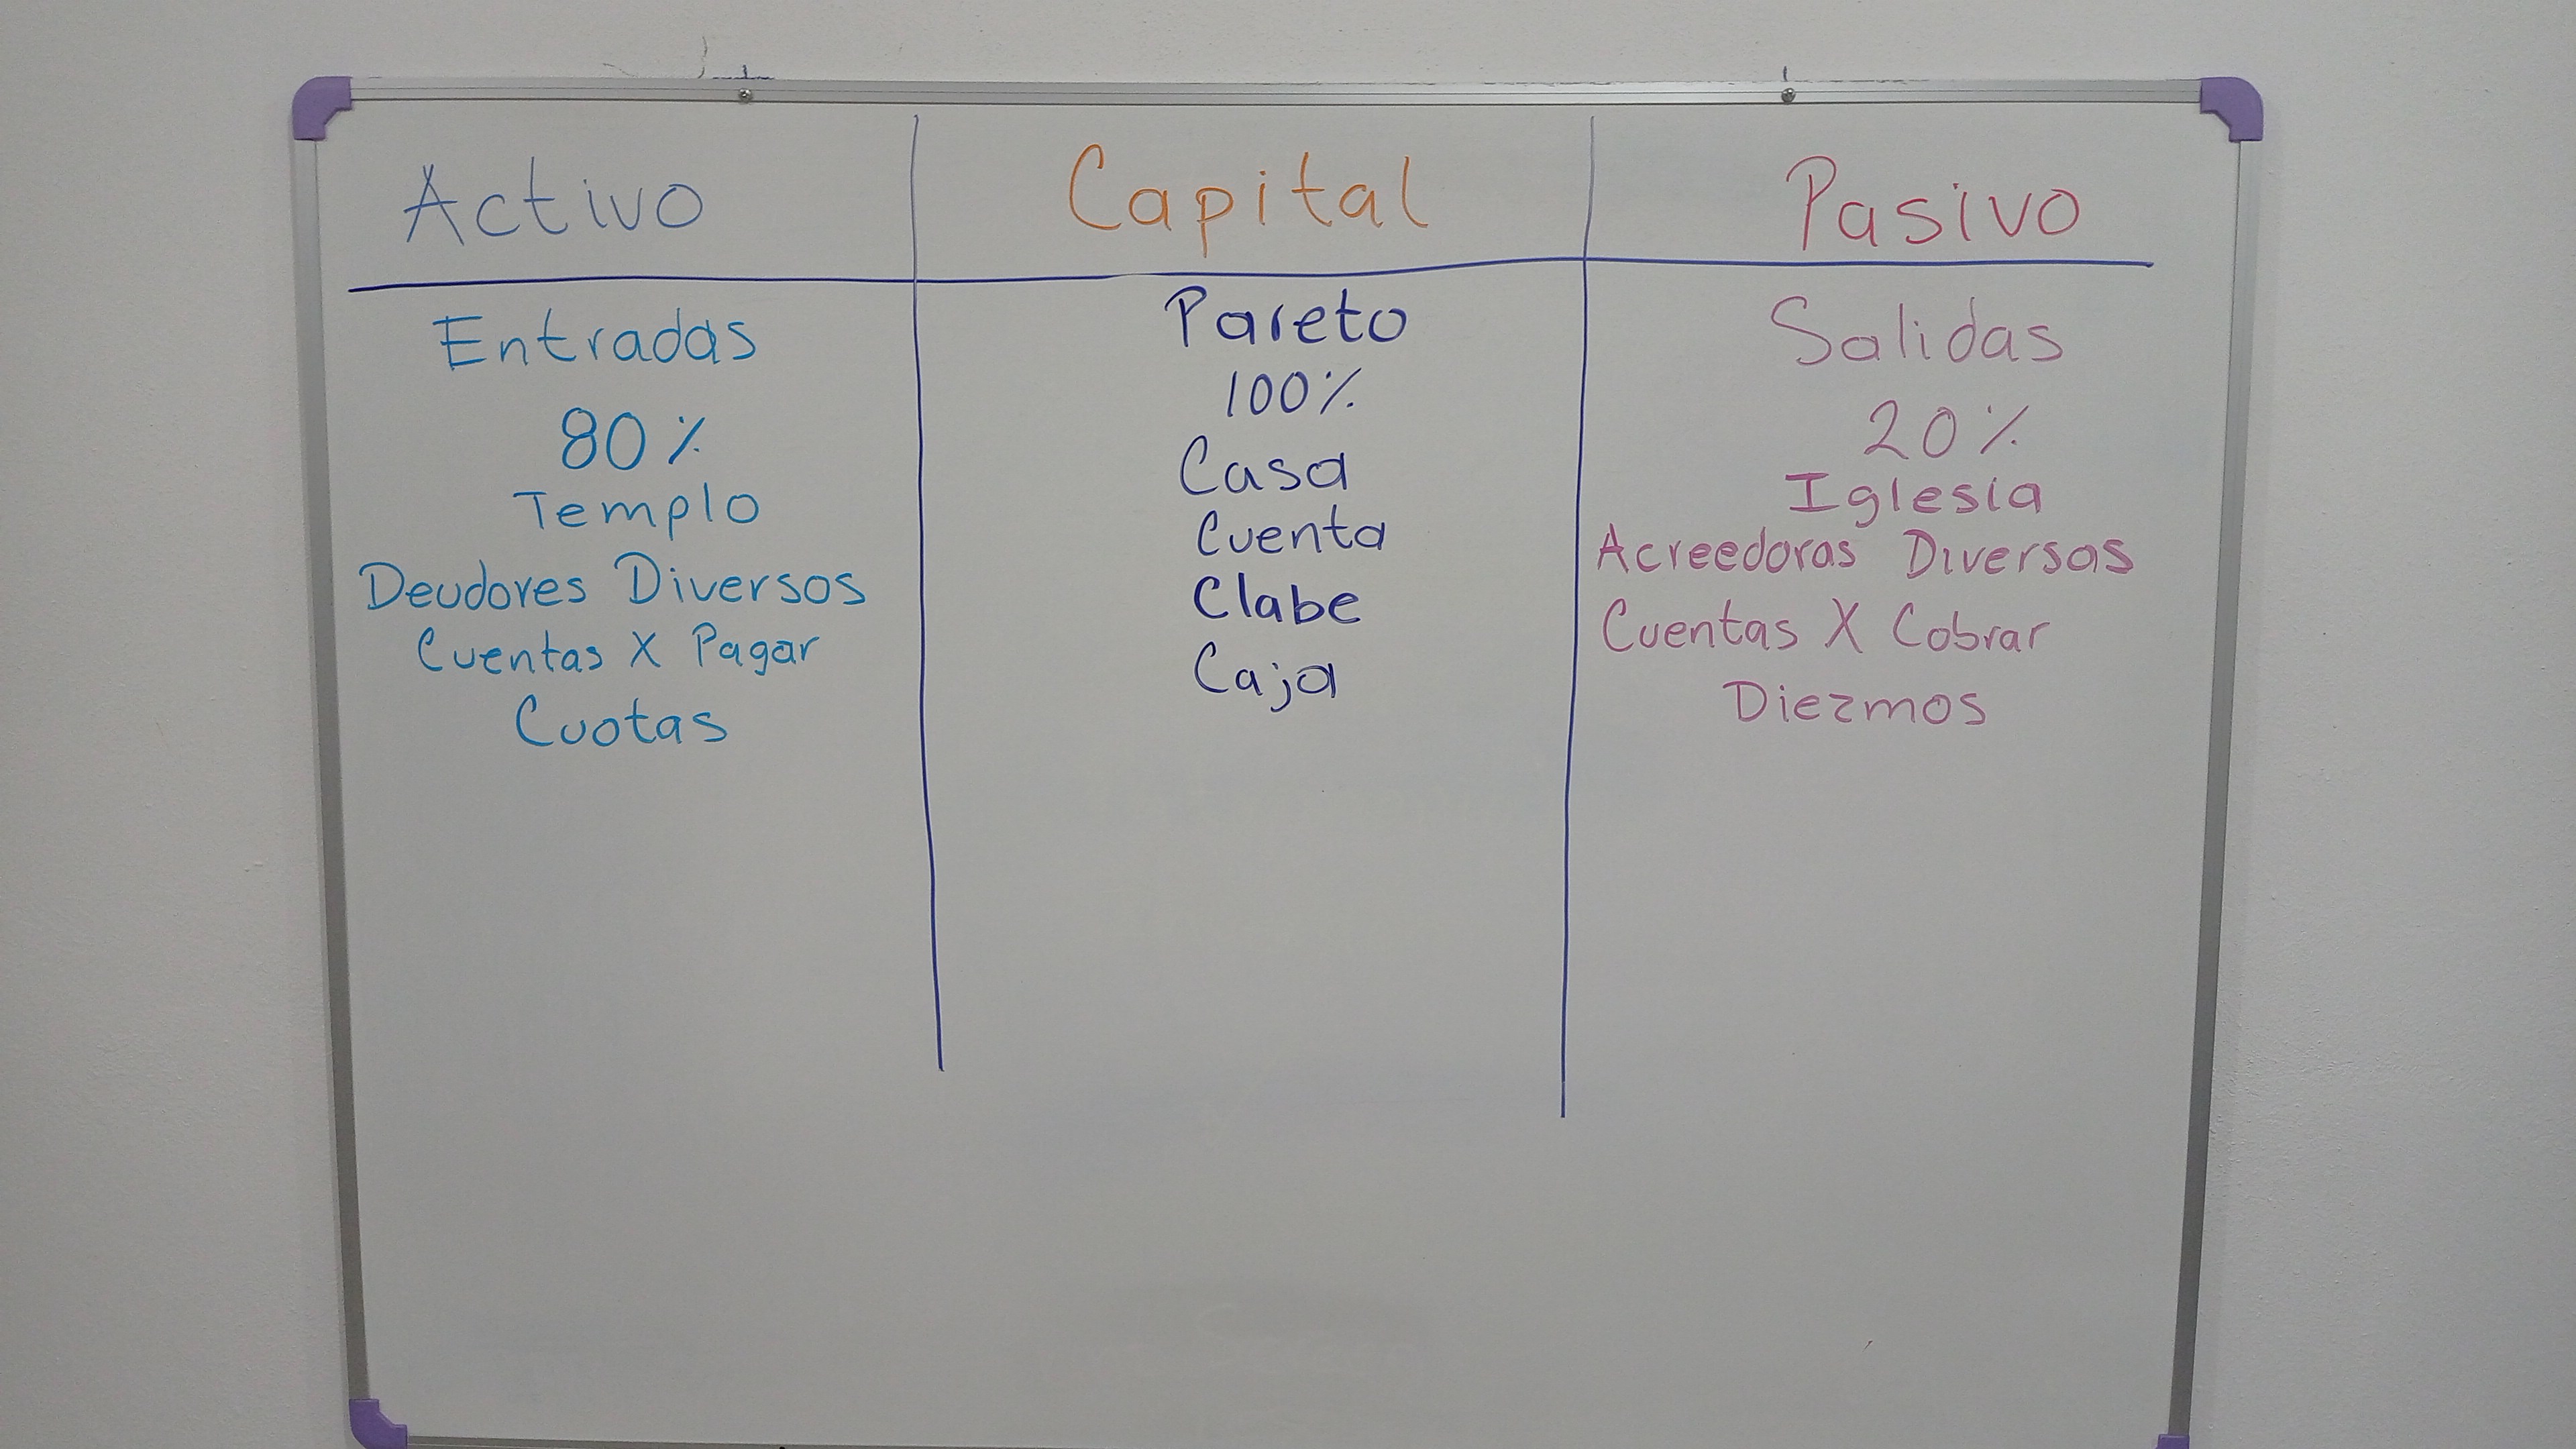 Activo
Capital
Pasivo
Entradas
80%
Templo
Deudores Diversos
Cuentas X Pagar
Cuotas
Pareto
100%
Casa
Cuenta
Clabe
Caja
Salidas
20%
Iglesia
Acreedoras Diversas
Cuentas X Cobrar
Diezmos